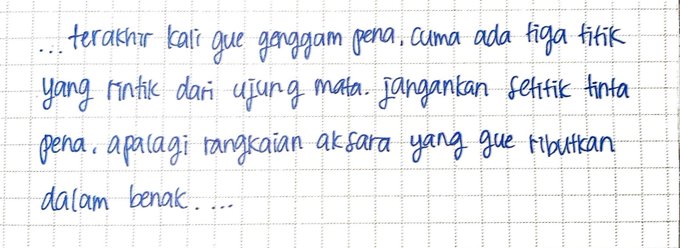 ...terakhir kali gue genggam pena, cuma ada tiga titik
yang rintik dari ujung mata. jangankan setitik tinta
pena, apalagi rangkaian aksara yang gue ributkan
dalam benak. ...